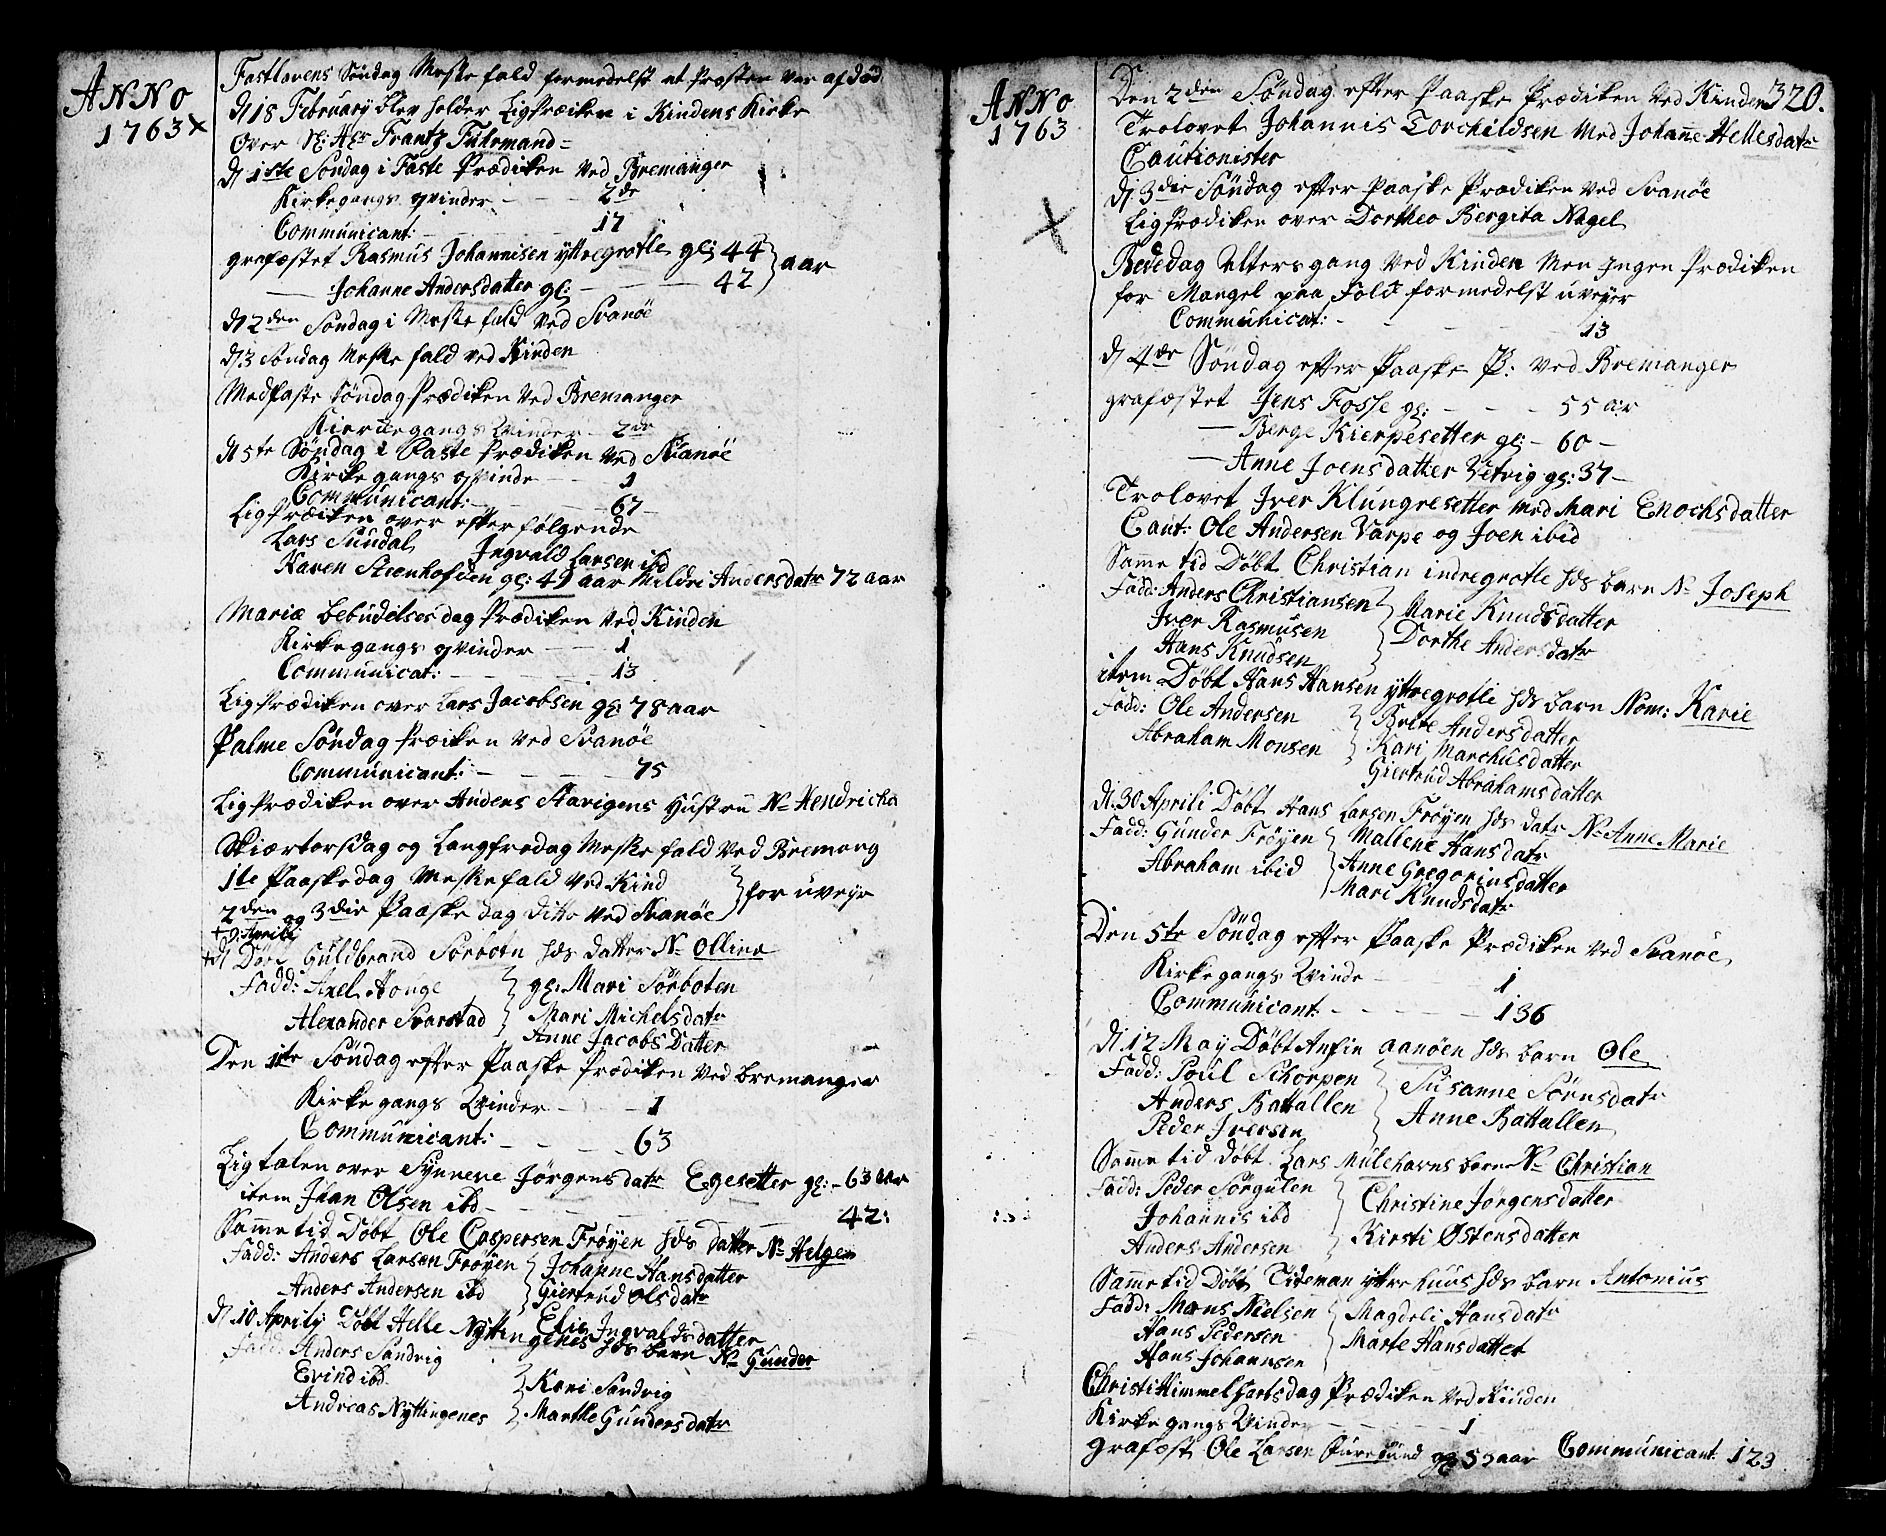 ANNO
1763 X
Fastlavens Søndag Meske fald formedelst at Præsten var afdød
d/ 18 February blev holden Ligpræiken i Kindens Kirke
Over Sl: Hr Frantz Fuhrmand =
d/ 1ste Søndag i Faste Prædiken ved Bremanger
Kirkegangs qvinder - - 2de
Communicant: - - - 17
grafæstet Rasmus Johannisen yttregrotle gl: 44 } aar
— Johanne Andersdatter gl: - - - 42
d/ 2den Søndag i Meske fald ved Svanøe
d/ 3 Søndag Meske fald ved Kinden
Medfaste Søndag Prædiken ved Bremanger
Kierkegangs Qvinder - 2de
d/ 5te Søndag i Faste Prædiken ved Svanøe
Kirke gangs qvinde - - 1
Communicant: - - - 67 -
Ligpræiken over efterfølgende
Lars Sundal Ingvald Larsen ibd
Karen Steenhofden gl: 49 aar Mildri Andersdatr 72 aar
Mariæ bebudelses dag Prædiken ved Kinden
Kirkegangs qvinder - - 1
Communicat: - - - - 13
Ligprædiken over Lars Jacobsen gl: 78 aar
Palme Søndag Præiken ved Svanøe
Communicant: - - - - 75
Ligprædiken over Anders Starigens Hustru N= Hendricha
Skiærtorsdag og Langfredag Meske fald ved Bremang
1te Paaskedag Meskefald ved Kind } for uveyr
2den og 3die Paaske dag ditto ved Svanøe
+ 9. Aprili
+ d/ Døbt Guldbrand Sørbotn hds datter N= Olline
Fadd: Axel Houge } gl: Mari Sørboten
Alexander Svarstad Mari Michelsdatr
Anne Jacobs Datter
Den 1te Søndag efter Paaske Prædiken ved bremanger
Kirke gangs Qvinder - - 1
Communicant: - - - - 63
Ligtalen over Synneve Jørgensdatr Egesetter gl: - 63 ar
item Jhan Olsen ibd - - - - - 42:
Samme tid Døbt Ole Caspersen Frøyen hds datter N= Helgen
Fadd: Anders Larsen Frøyen { Johanne Hansdatter
Anders Andersen ibd Giertrud Olsdatr
Elie Ingvaldsdatter
d/ 10 Aprily Døbt Helle Nyttingenes hds barn N= Gunder
Fadd: Anders Sandvig
Evind ibd. } Kari Sandvig
Andreas Nyttingenes Marthe Gundersdatr
ANNO
1763
X
320.
Den 2den Søndag efter Paaske Prædiken ved Kinden
Trolovet Johannis Torchildsen med Johanne Hellesdatr
Cautionister
d/. 3die Søndag efter Paaske Prædiken ved Svanøe
Lig Prædiken over Dorthea Bergita Nagel
Bededag Altersgang ved Kinden Men Ingen Prædiken
for Mangel paa Folk formedelst uveyer
Communicat: - - - - - 13
d/ 4de Søndag efter Paaske P: ved Bremanger
grafæstet Jens Fosse gl: - - - 55 ar
— Berge Kierpesetter gl: - 60 -
— Anne Joensdatter Vetvig gl: 37 -
Trolovet Iver Klungresetter med Mari Enochsdatter
Caut: Ole Andersen Varpe og Joen ibid
Samme tid Døbt Christian indregrotle hds barn N= Joseph
Fadd: Anders Christiansen } Marie Knudsdatter
Iver Rasmusen Dorthe Andersdatr
Hans Knudsen
item Døbt Hans Hansen yttregrotle hds barn Nom: Karie
Fadd: Ole Andersen } Brite Andersdatter
Abraham Monsen Kari Marchusdatter
Giertrud Abrahamsdatter
d/ 30 Aprili Døbt Hans Larsen Frøyen hds datr N= Anne Marie
Fadd: Gunder Frøyen { Mallene Hansdatr
Abraham ibid Anne Gregoriusdatter
Mari Knudsdatr
Den 5te Søndag efter Paaske Prædiken ved Svanøe
Kirke gangs Qvinde - - 1
Communicant - - - - 136
d/ 12 May Døbt Anfin aanøen hds barn Ole
Fadd: Poul Schorpen } Susanne Sørnsdatr
Anders Battallen Anne Battallen
Peder Iversen
Samme tid døbt Lars Mulehavns barn N= Christian
Fadd: Peder Sørgulen } Christine Jørgensdatter
Johannis ibd Kirsti Østensdatter
Anders Andersen
Samme tid Døbt Tideman yttre huus hds barn Antonius
Fadd: Mons Nielsen } Magdeli Hansdatr
Hans Pedersen Marte Hansdatter
Hans Johannsen
Christi Himmelfartsdag Prædiken ved Kinden
Kirke gangs Qvinder - - - 1
grafæst Ole Larsen gl 55 aar Communicant 123